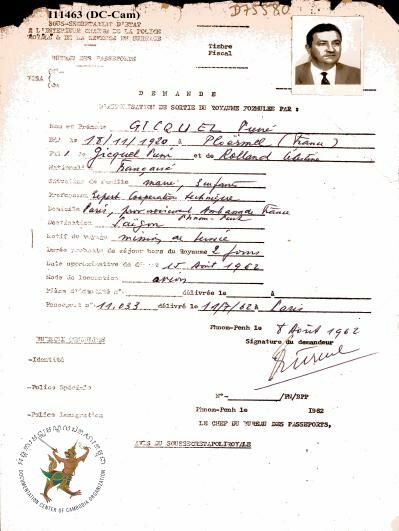 111463 (DC-Cam)
D75580
SOUS-SECRETARIAT D'ETAT
A L'INTERIEUR CHARGE DE LA POLICE
ROYALE & DE LA DEFENSE EN SURFACE
BUREAU DES PASSEPORTS
Timbre
Fiscal
VISA
DEMANDE
SORTIE DU ROYAUME FORMULEE PAR :
Nom et Prénoms GICQUEL Pierre
18/11/1920 à Ploërmel (France)
Gicquel Pierre et de Rolland
Nationalité Française
Situation de famille marié, 3 enfants
Profession Expert Coopération technique
Domicile Paris, provisoirement Ambassade France
Phnom-Penh
Destination Saigon
Motif du voyage mission de service
Durée probable de séjour hors du Royaume 2 jours
Date approximative de 15 Août 1962
Mode de locomotion avion
Pièce d'identité n° délivrée le à
Passeport n° 11.033 délivré le 11/7/62 à Paris
Phnom-Penh le 8 Août 1962
Signature du demandeur
-Identité
-Police Spéciale
-Police Immigration
N°- /PN/BPP
Phnom-Penh le 1962
LE CHEF DU BUREAU DES PASSEPORTS,
AVIS DU SOUSSECRETAPOLIROYALE
DOCUMENTATION CENTER OF CAMBODIA ORGANIZATION